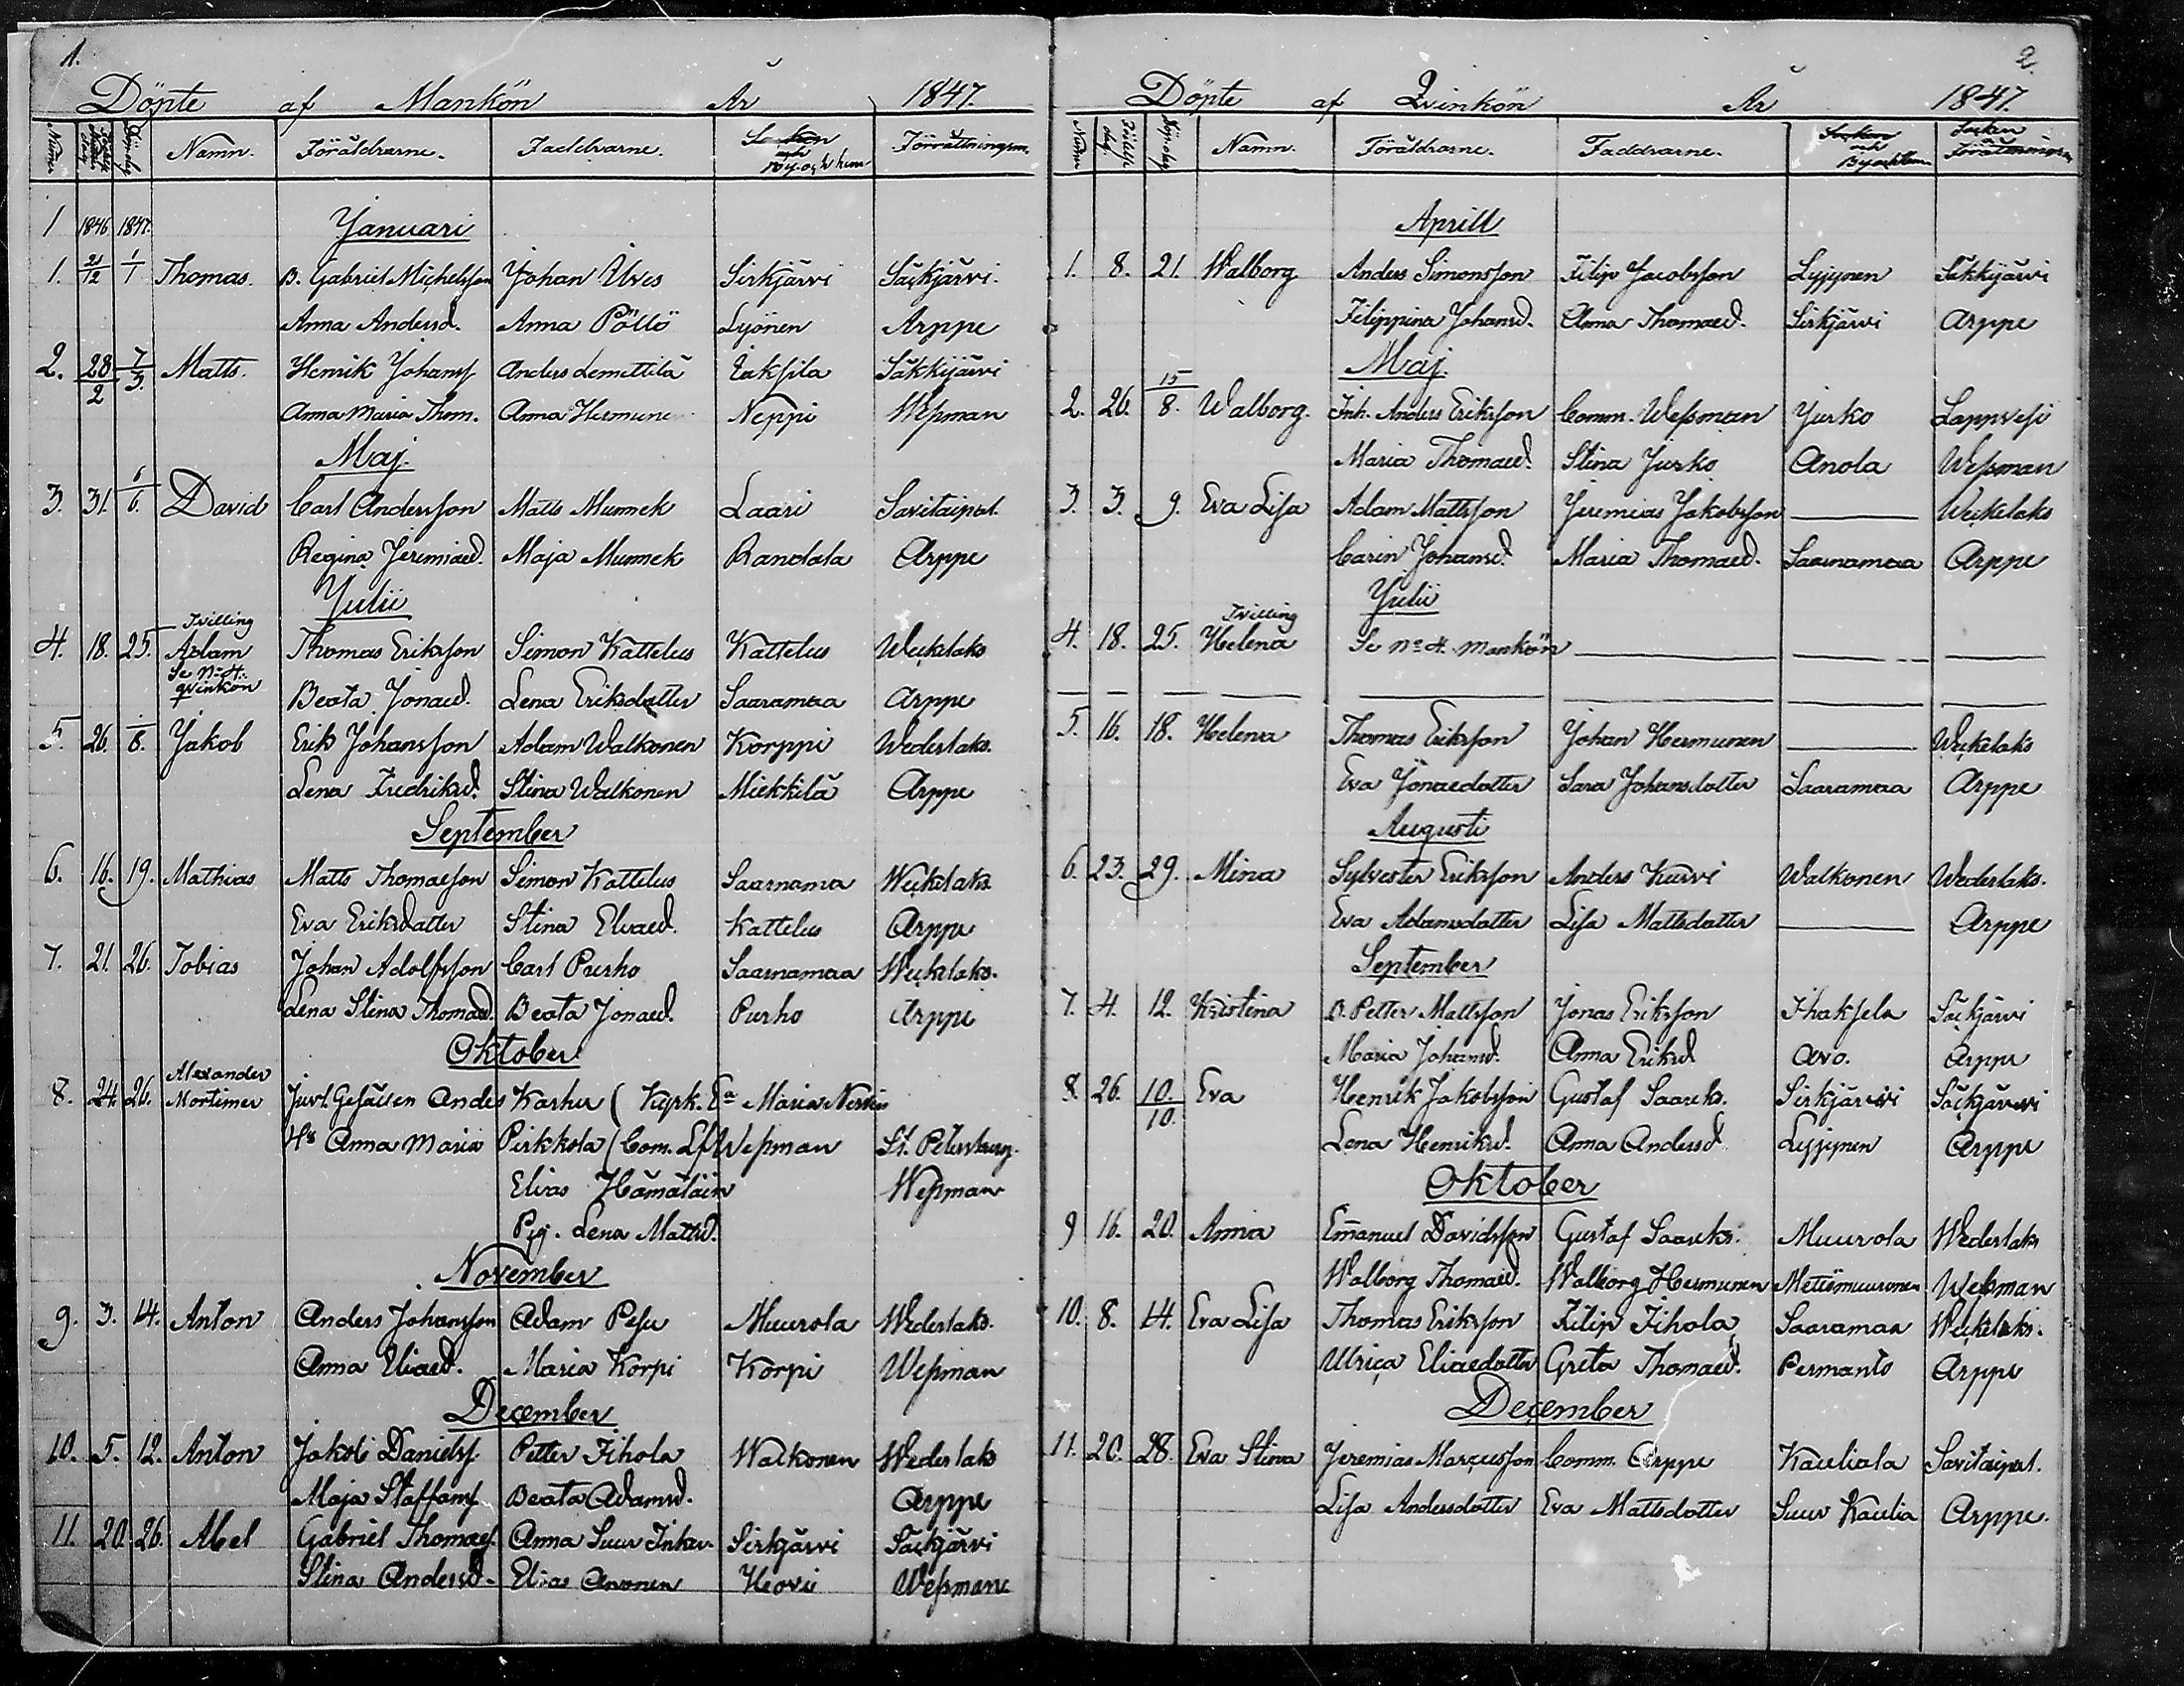 1.
Döpte af Mankön År 1847.
Namn. Föräldrarne. Faddrarne. By och hem
1 1846 1847. Januari
1. 21/12 1/1 Thomas. B. Gabriel Michelsson Johan Ilves Sirkjärvi Säckjärvi.
Anna Andersd. Anna Pöllö Lyönen Arppe
2. 28/2 7/3. Matts. Henrik Johansf Anders Lemettilä Säkkijärvi
Anna Maria Thom. Anna Hermune Neppi Wessman
Maj.
3. 31. 6/6. David Carl Andersson Matts Munnek Laari Savitaipal.
Regina Jeremiaed. Maja Munnek Randala Arppe
Julii
Tvilling
4. 18. 25. Adam Thomas Eriksson Simon Kattelus Kattelus Weckelaks
Se No 4. qvinkön
Beata Jonaed. Lena Eriksdotter Saaramaa Arppe
5. 26. 8. Jakob Erik Johansson Adam Walkonen Korppi Wederlaks.
Lena Fredriksd. Stina Walkonen Miekkilä Arppe
September
6. 16. 19. Mathias Matts Thomaesson Simon Kattelus Saarnamaa Weckelaks.
Eva Eriksdotter Stina Eliaed. Kattelus Arppe
7. 21. 26. Tobias Johan Adolfsson Carl Purho Saarnamaa Weckelaks.
Lena Stina Thomaed. Beata Jonaed. Purho Arppe
Oktober
Alexander
8. 24. 26. Mortimer Anders Karhu ( Kyrk. Maria
Hs Anna Maria Pirkkola (Com. Wessman St. Petersburg.
Elias Hämäläin Wessman
Pig. Lena Mattsd.
November
9. 3. 14. Anton Anders Johansson Adam Pesu Muurola Wederlaks.
Anna Eliaed. Maria Korpi Korpi Wessman
December
10. 5. 12. Anton Jakob Danielsf Petter Tihola Walkonen Wederlaks
Maja Staffansf Beata Adamsd. Arppe
11. 20. 26. Abel Gabriel Thomaef. Anna Suur Inker. Sirkjärvi Säckjärvi
Stina Andersd. Elias Anonen Heovi Wessman
2.
Döpte af Qvinkön År 1847.
Namn. Föräldrarne. Faddrarne. Socken och By och Hem Socken Förättningsm
Aprill
1. 8. 21. Walborg Anders Simonsson Filip Jacobsson Lyyynen Säkkijärvi
Filippina Johansd. Anna Thomaed. Sirkjärvi Arppe
Maj.
2. 26. 15/8. Walborg. Inh. Anders Eriksson Comm. Wessman Jurko Lappvesi
Maria Thomaed. Stina Jurko Anola Wessman
3. 3. 9. Eva Lisa Adam Mattsson Jeremias Jakobsson — Weckelaks
Carin Johansd. Maria Thomaed. Saarnamaa Arppe
Julii
Tvilling
4. 18. 25. Helena Se No 4. mankön — — —
5. 16. 18. Helena Thomas Eriksson Johan Hermunen — Weckelaks
Eva Jonaedotter Sara Johansdotter Saaramaa Arppe
Augusti
6. 23. 29. Mina Sylvester Eriksson Anders Kurvi Walkonen Wederlaks.
Eva Adamsdotter Lisa Mattsdotter — Arppe
September
7. 4. 12. Kristina B. Petter Mattsson Jonas Eriksson Ihaksela Säckjärvi
Maria Johansd. Anna Eriksd Avo. Arppe
8. 26. 10./10. Eva Henrik Jakobsson Gustaf Saarek. Sirkjärvi Säckjärvi
Lena Henriksd. Anna Andersd. Lyyynen Arppe
Oktober
9 16. 20. Anna Emanuel Davidsson Gustaf Saareks. Muurola Wederlaks
Walborg Thomaed. Walborg Hermunen Metsömuuronen Wessman
10. 8. 14. Eva Lisa Thomas Eriksson Filip Tihola Saaramaa Weckelaks.
Ulrica Eliaedotter Greta Thomaed. Permanto Arppe
December
11. 20. 28. Eva Stina Jeremias Marcusson Comm. Arppe Kauliala Savitaipal.
Lisa Andersdotter Eva Mattsdotter Suur Kaulia Arppe.